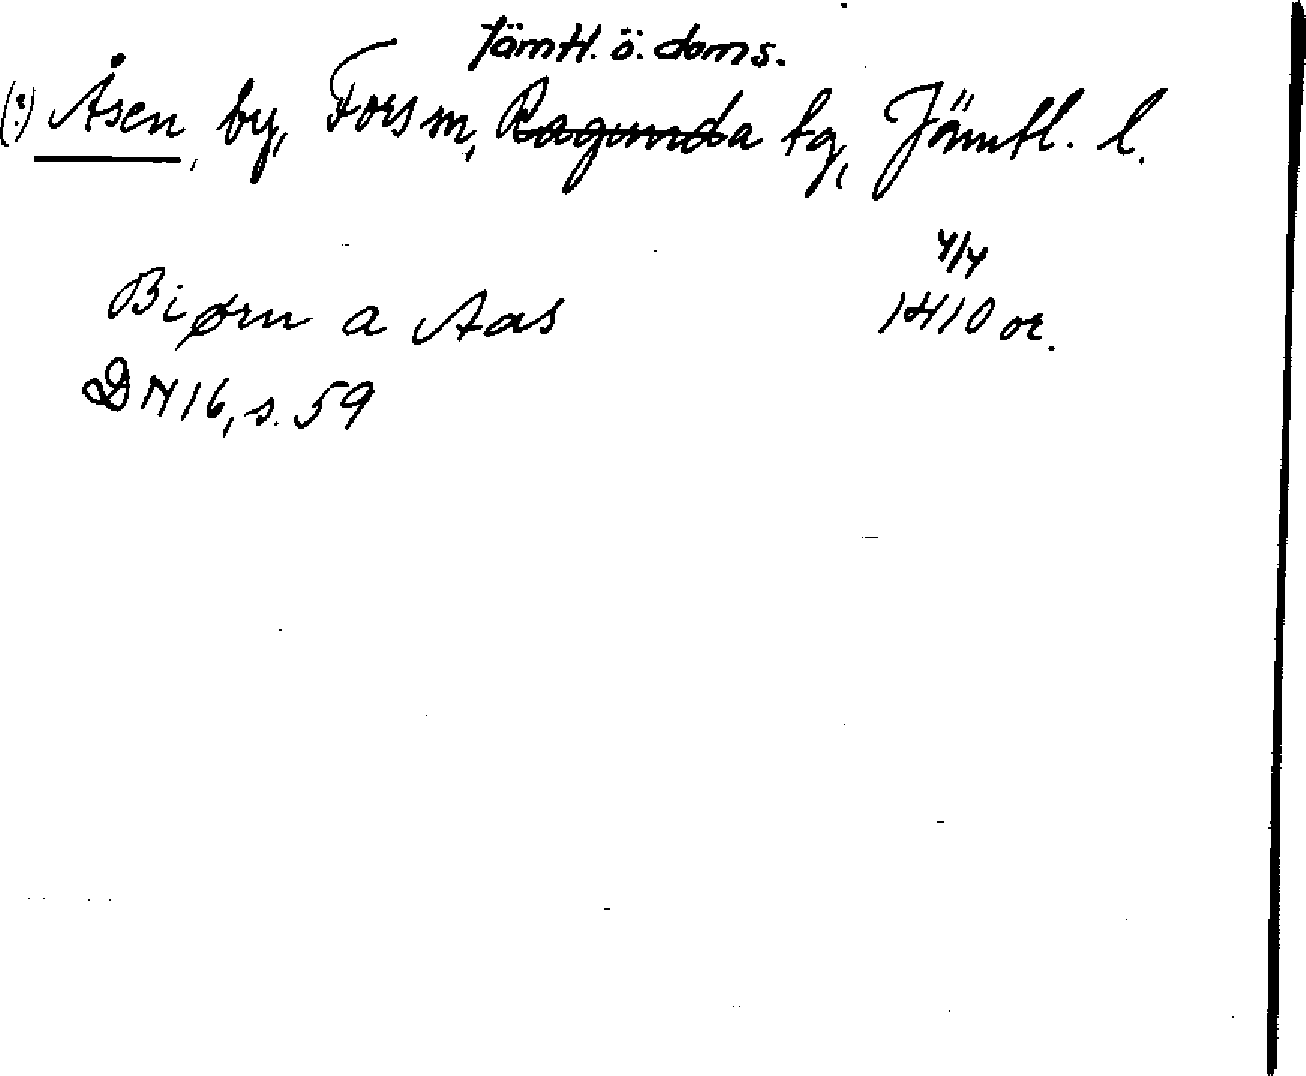 Jämtl. ö. doms.
(?) Åsen, by, Fors sn, Ragunda tg, Jämtl. l.
4/4
Biørn a Aas 1410 or.
DN 16, s. 59